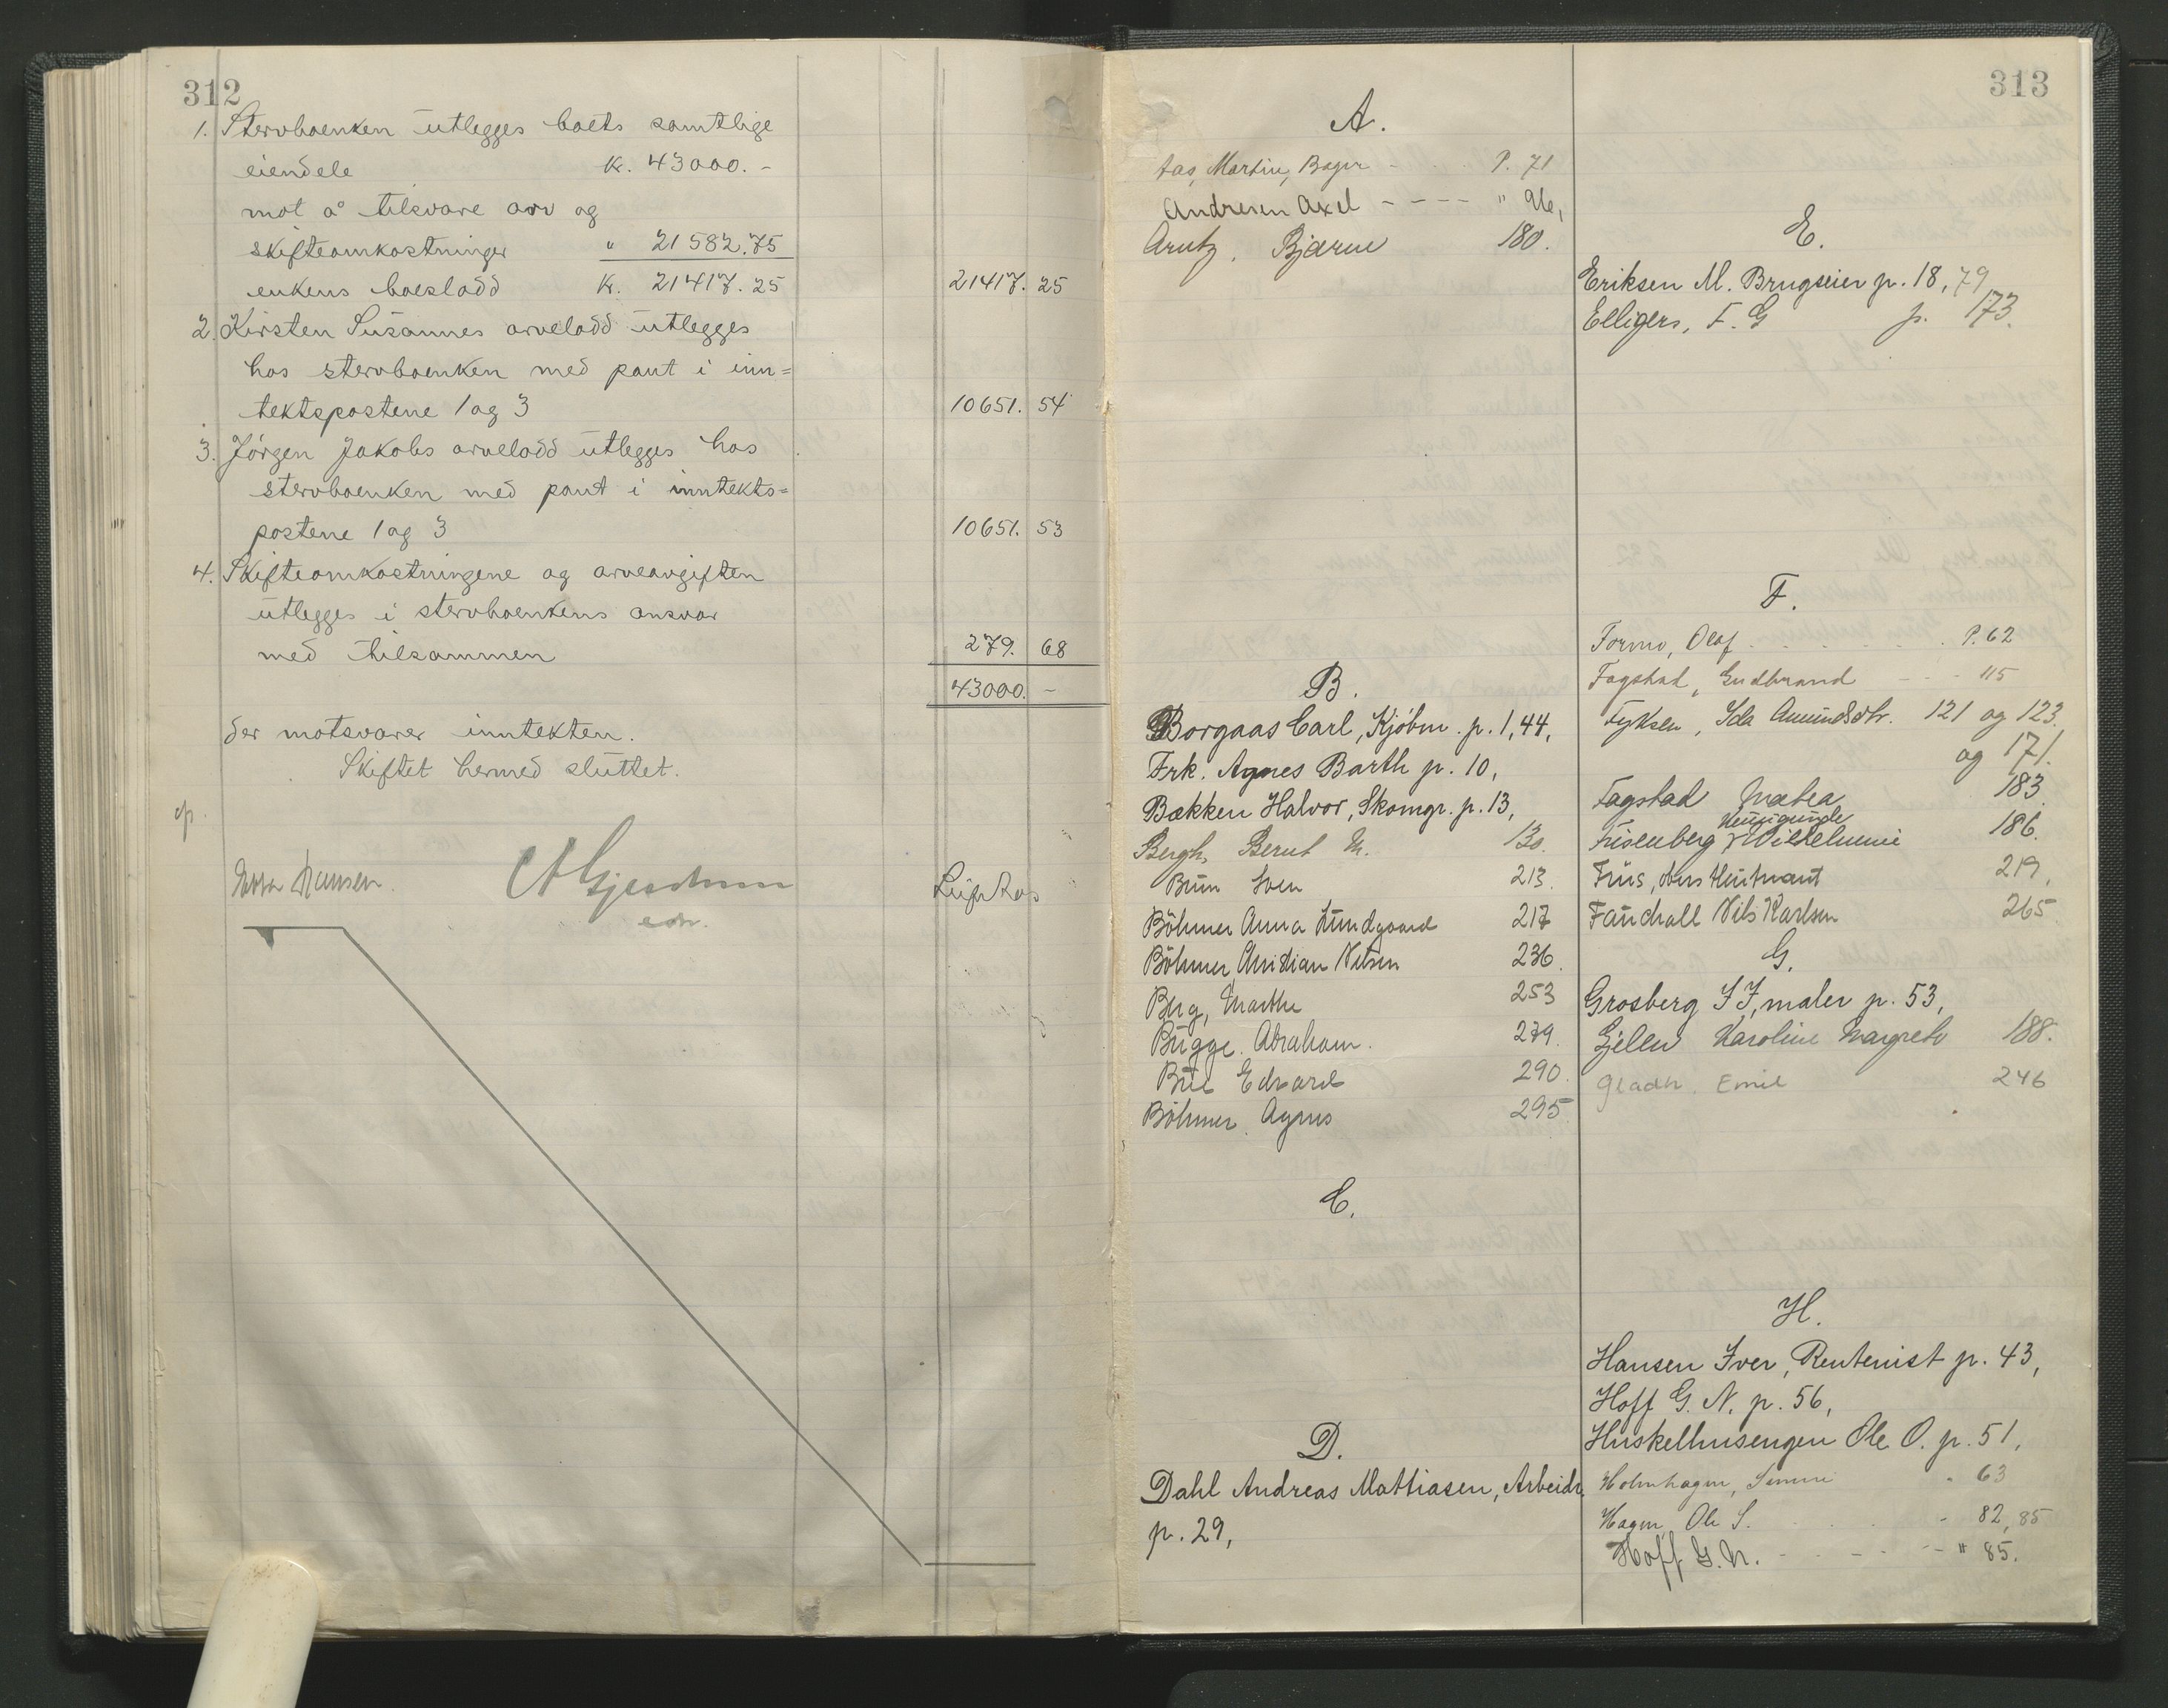 312
1. Stervboenken utlegges boets samtlige
eiendele kr. 43000.-
mot å tilsvare arv og
skifteomkostninger " 21582.75
enkens boeslodd kr. 21417.25 21417. 25
2. Kirsten Susannes arvelodd utlegges
hos stervboenken med pant i inn=
tektspostene 1 og 3 10651. 54
3. Jörgen Jakobs arvelodd utlegges hos
stervboenken med pant i inntekts=
postene 1 og 3 10651. 53
4. Skifteomkostningene og arveavgiften
utlegges i stervboenkens ansvar
med tilsammen 279. 68
43000. -
der motsvarer inntekten.
Skiftet hermed sluttet.
Hansen
313
A.
Aas, Martin, Bager - P. 71
Andresen Axel - - - - " 96,
Arntz, Bjarne 180.
B.
Borgaas Carl, Kjöbm. p. 1, 44,
Frk. Agnes Barth p. 10,
Bækken Halvor, Skomgr. p. 13,
Bergh, Bernt M. 130.
Brun Sven 213.
Böhmer Anna Lundgaard 217
Böhmer Christian Nilsen 236.
Berg, Marthe 253
Bugge. Abraham. 279.
Bue Edvard 290.
Böhmer. Agnes 295
C.
D.
Dahl Andreas Mattiasen, Arbeidr.
p. 29,
E.
Eriksen M. Brugseier p. 18, 79
Elligers, F. G p. 173.
F.
Formo, Olaf P. 62
Fagstad, Gudbrand - - - 115
Fyksen, Ida Amundsdtr. 121 og 123.
og 171.
Fagstad Mathea 183.
Kunigunde
Frisenberg Wilhelmine 186.
Friis, 219.
Faudrall Nils Karlsen 265
G.
Grosberg J F, maler p. 53,
Gjelen Karoline Margrete 188.
Gladh. Emil 246
H.
Hansen Iver, Rentenist p. 43,
Hoff G. N. p. 56,
Huskelhusengen Ole O. p. 51,
Holmhagen, 63
Hagen Ole S. - 82, 85
Hoff G. N. - - - - " 85.